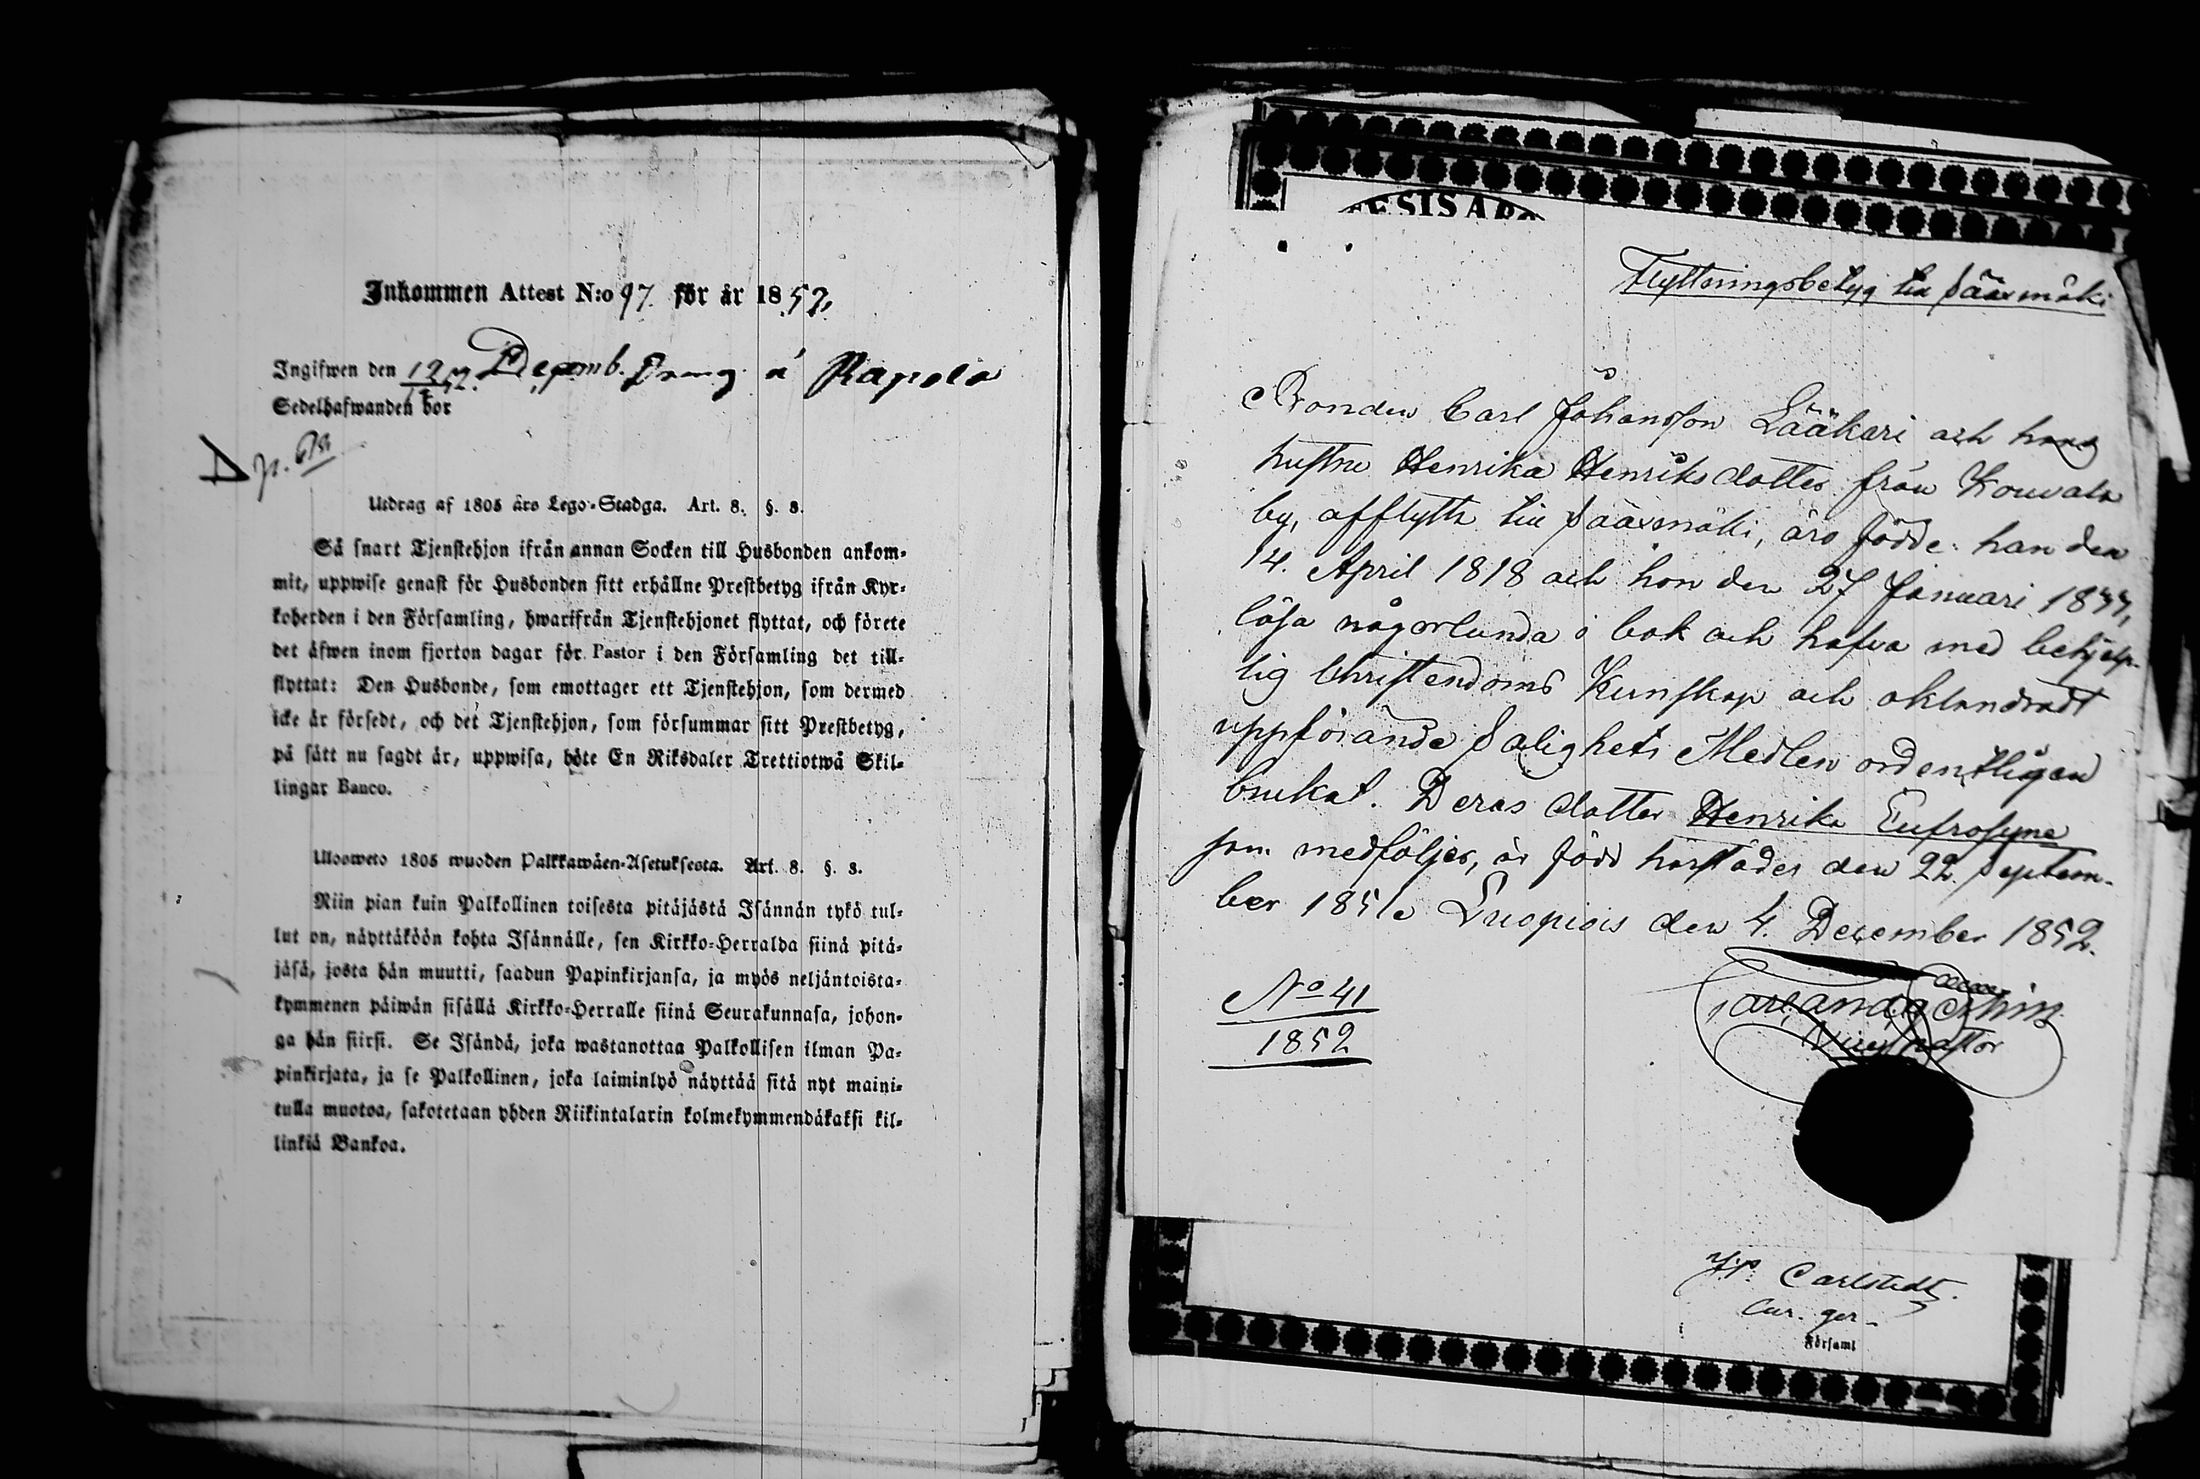 Inkommen Attest N:o 97. för år 1852.
Ingifwen den 12/12 52. Decemb. Dräng á Rapola
Sedelhafwanden bor
D p. 631
Utdrag af 1805 års Lego-Stadga. Art. 8. §. 3.
Så snart Tjenstehjon ifrån annan Socken till Husbonden ankom-
mit, uppwise genast för Husbonden sitt erhållne Prestbetyg ifrån Kyr-
koherden i den Församling, hwarifrån Tjenstehjonet flyttat, och förete
det äfwen inom fjorton dagar för Pastor i den Församling det till-
flyttat: Den Husbonde, som emottager ett Tjenstehjon, som dermed
icke är försedt, och det Tjenstehjon, som försummar sitt Prestbetyg,
på sätt nu sagdt är, uppwisa, böte En Riksdaler Trettiotwå Skil-
lingar Banco.
Ulosweto 1805 wuoden Palkkawäen-Asetuksesta. Art. 8. §. 3.
Niin pian kuin Palkollinen toisesta pitäjästä Isännän tykö tul-
lut on, näyttäköön kohta Isännälle, sen Kirkko-Herralda siinä pitä-
jäsä, josta hän muutti, saadun Papinkirjansa, ja myös neljäntoista-
kymmenen päiwän sisällä Kirkko-Herralle siinä Seurakunnasa, johon-
ga hän siirsi. Se Isändä, joka wastanottaa Palkollisen ilman Pa-
pinkirjata, ja se Palkollinen, joka laiminlyö näyttää sitä nyt maini-
tulla muotoa, sakotetaan yhden Riikintalarin kolmekymmendäkaksi kil-
linkiä Bankoa.
Flyttningsbetyg till Sääxmäki
Bonden Carl Johansson Lääkari och hans
hustru Henrika Henriksdotter från Kouvala
by, afflytta till Sääxmäki, äro födde: han den
14. April 1818 och hon den 27 Januari 1833,
läsa någorlunda i bok och hafva med behjelp-
lig Christendoms Kunskap och oklandradt
uppförande Salighets Medlen ordentligen
brukat. Deras dotter Henrika Eufrosyne
som medföljer, är född härstädes den 22. Septem-
ber 1851 Luopiois den 4. December 1852.
No 41
1852
Vice pastor
Carlstedt.
Cur. ger.
i
Församl